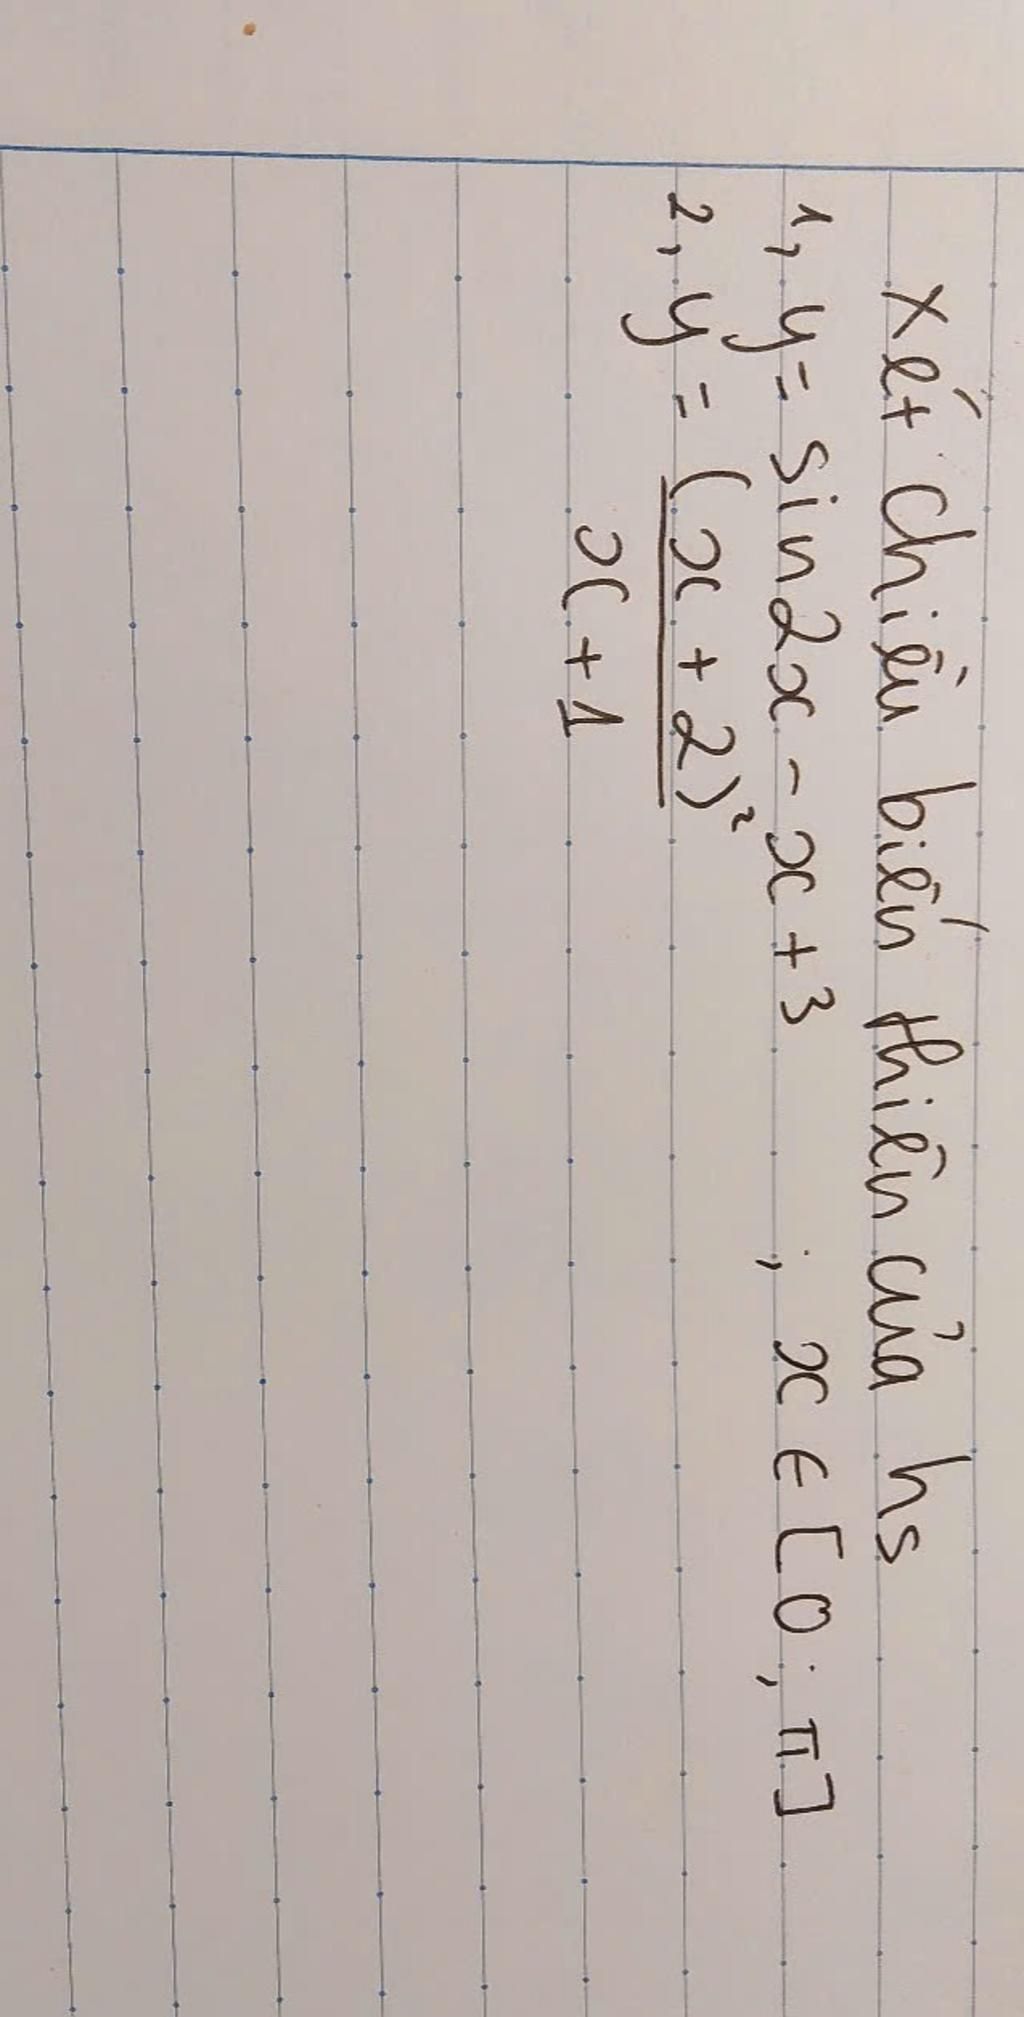 Xét chiều biến thiên của hs
1, y = sin2x - x + 3 ; x ∈ [0; π]
2, y = (x + 2)²
x + 1